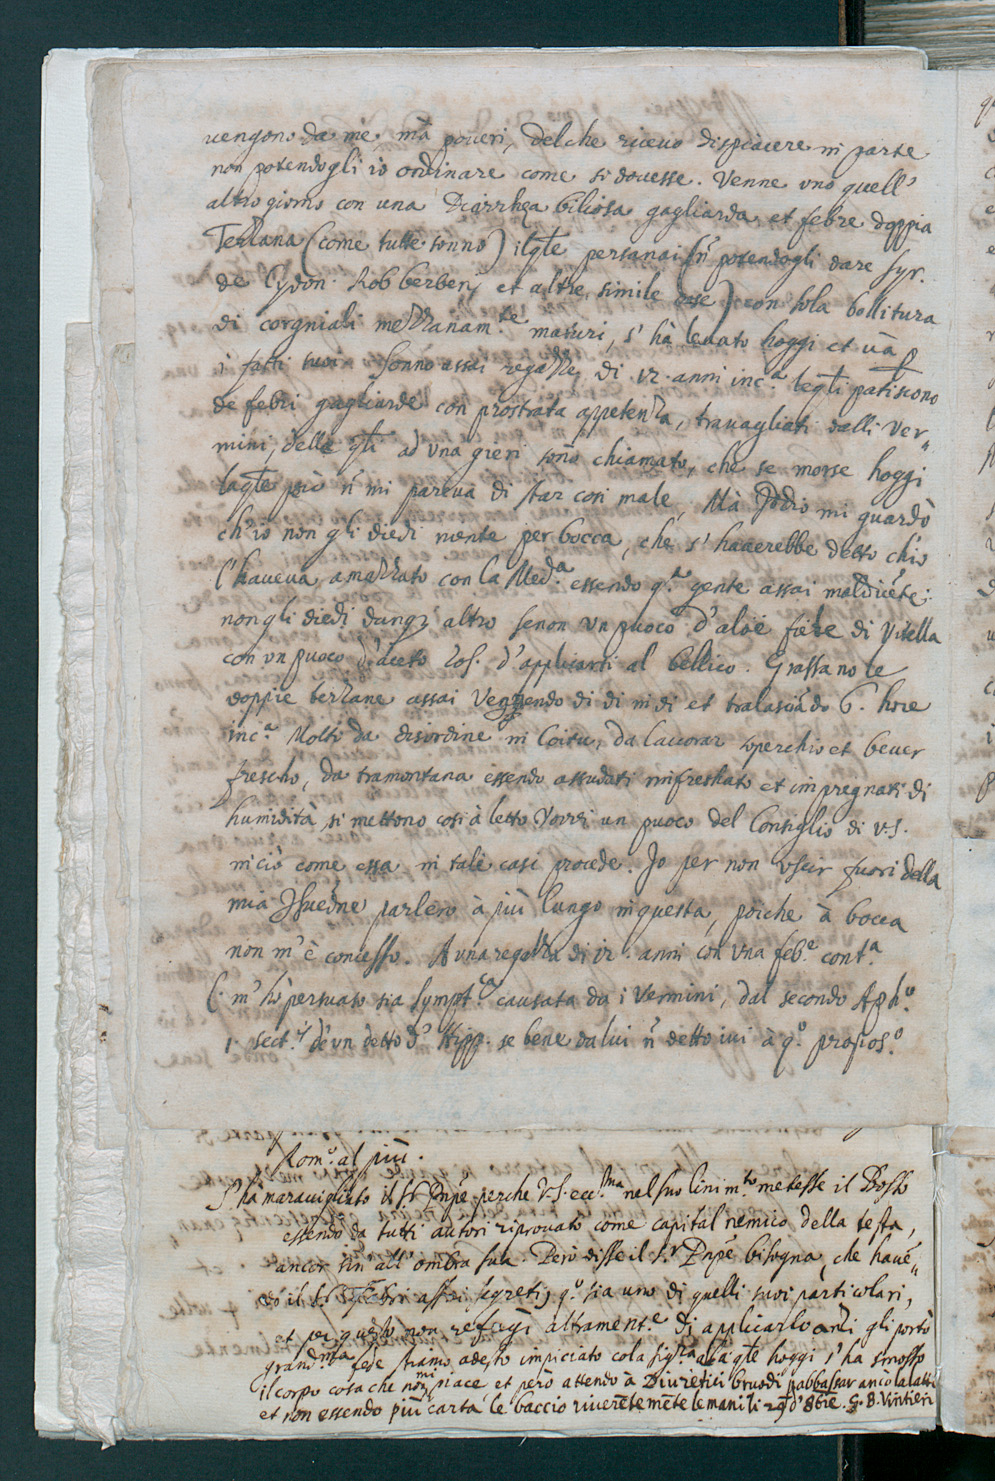 vengono da me, mà poveri, del che ricevo dispiacere in parte
non potendogli io ordinare come si dovesse. Venne uno quell'
altro giorno con una Diarrhea biliosa gagliarda, et febre doppia
Terzana (come tutte sonno) il qle persanai (nõ potendogli dare syr.
de Cydon. Rob berberj et altre simile cose) con sola bollitura
di corgniali mezzanam.te maturi, s' hà levato hoggi et và p
i fatti suoi. Sonno assai regazze di 12 anni inc.a leqli patiscono
de febri gagliarde con prostrata appetenza, travagliati dalli ver„
mini, delle qli ad una gieri sono chiamato, che se morse hoggi
laqle però nõ mi pareva di star cosi male, Mà Iddio mi guardò
ch'io non gli diedi niente per bocca, che s' haverebbe detto ch'io
l'haveva amazzato con la Med.a essendo q.a gente assai maldicẽte:
non gli diedi dunq3 altro se non un puoco d'aloè fiele di Vitella
con un puoco d'aceto ros. d'applicarsi al bellico. Grassano le
doppie terzane assai Venendo di di in di et tralasciãdo 6. hore
inc.a Molti da disordine in Coitu, da lavorar soperchio et bever
frescho, da tramontana essendo assudati rinfreshato et impregnati di
humidità, si mettono cosi à letto Vorrei un puoco del Consiglio di V.S.
in ciò come essa in tale casi procede. Io per non uscir fuori della
mia parlerò à più lungo in questa, poiche à bocca
non m'è concesso. A una regazza di 12. anni con una feb.e cont.a
m' hò persuaso sia sympt.ca causata da i Vermini, dal secondo Aph.o
1. sect.s d'un detto d' Hipp. se bene da lui nõ detto ivi à q.o propos.o
Rom.o al più.
S'ha maravigliato il S.r Pnpẽ perche V.S. ecc.ma nel suo linim.to metesse il Bosso
essendo da tutti autori riprovato come capital nemico della testa,
ancor sin' all' ombra sula. Però disse il S.r Pnpẽ bisogna, che havẽ„
do il S.r assai segreti, q.o sia uno di quelli suoi particolari,
et per questo non refugì altramente di applicarlo anzi gli portò
grand.ma fede stiamo adesto impiciato cola sig.ra alla qle hoggi s'ha smosso
il corpo cosa che non mi piace et però attendo à Diuretici bruodi p abbassar ancò la
et non essendo più carta le baccio riverẽtemẽte le mani li 29 d' 8bre. G. B. Vintieri